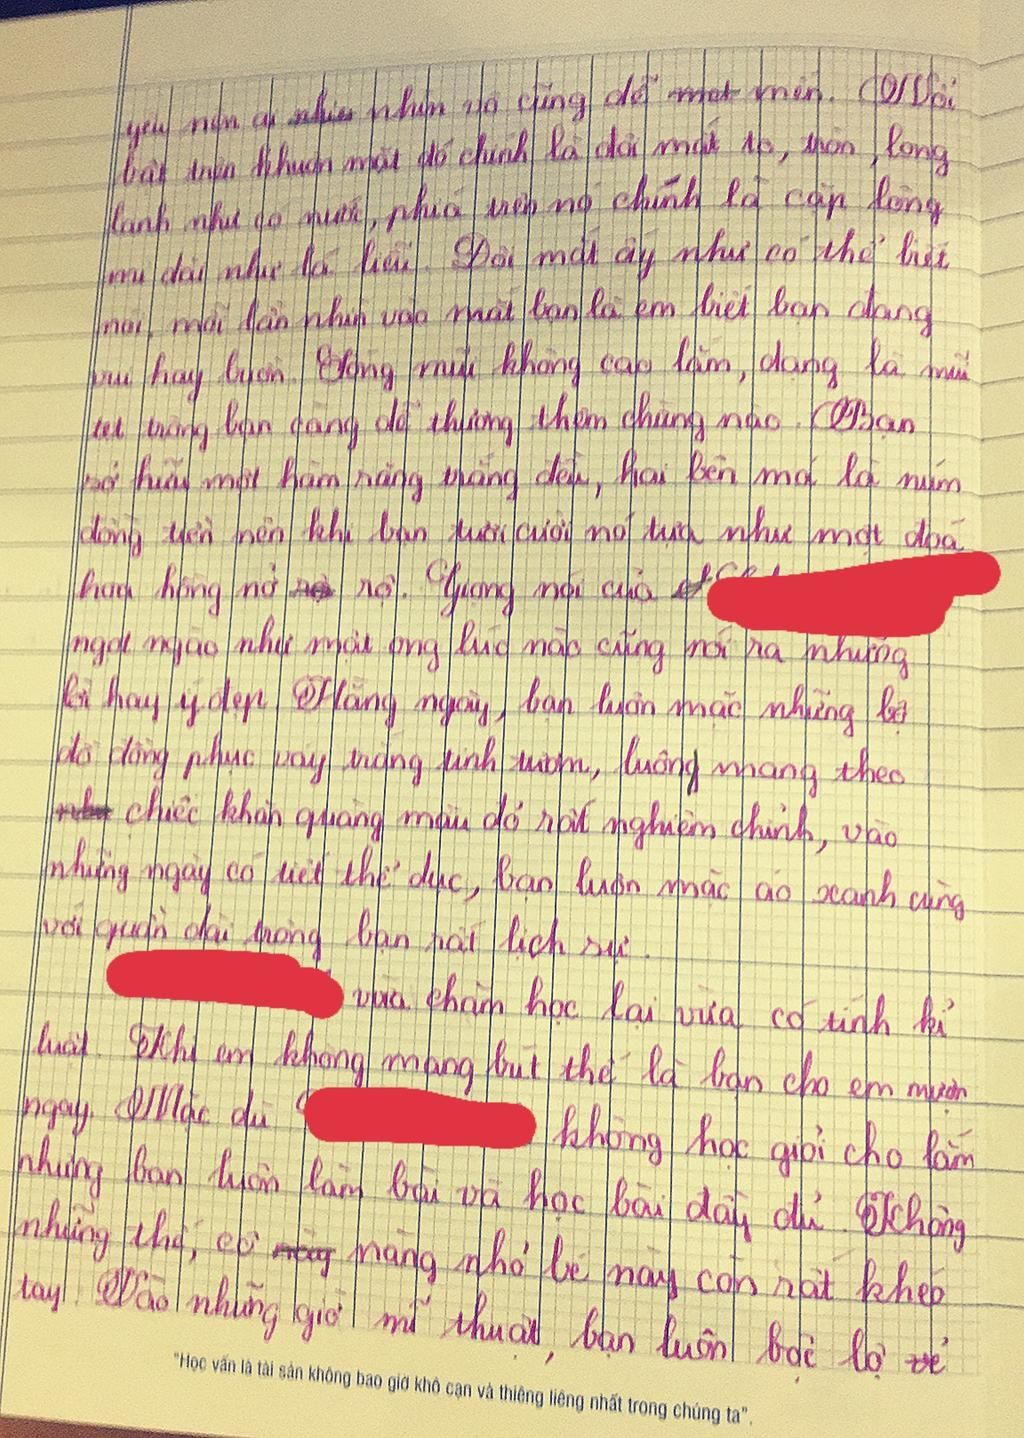 yêu nên ai nhìn vô cũng dễ mến. Nổi
bật trên khuôn mặt đó chính là đôi mắt to, tròn, long
lanh như có nước, phía trên nó chính là cặp lông
mi dài như lá liễu. Đôi mắt ấy như có thể biết
nói, mỗi lần nhìn vào mắt bạn là em biết bạn đang
vui hay buồn. Sống mũi không cao lắm, dạng là mũi
tẹt trông bạn càng dễ thương thêm chừng nào. Bạn
sở hữu một hàm răng trắng đều, hai bên má là núm
đồng tiền nên khi bạn tươi cười nó tựa như một đoá
hoa hồng nở rộ. Giọng nói của
ngọt ngào như mật ong lúc nào cũng nói ra những
lời hay ý đẹp. Hằng ngày, bạn luôn mặc những bộ
đồ đồng phục váy trắng tinh tươm, luông mang theo
chiếc khăn quàng màu đỏ rất nghiêm chỉnh, vào
những ngày có tiết thể dục, bạn luôn mặc áo xanh cùng
với quần dài trông bạn rất lịch sự.
vừa chăm học lại vừa có tính kỉ
luật. Khi em không mang bút thế là bạn cho em mượn
ngay. Mặc dù không học giỏi cho lắm
nhưng bạn luôn làm bài và học bài đầy đủ. Không
những thế, cô nàng nhỏ bé này còn rất khéo
tay. Vào những giờ mĩ thuật, bạn luôn bộc lộ vẻ
"Học vấn là tài sản không bao giờ khô cạn và thiêng liêng nhất trong chúng ta".